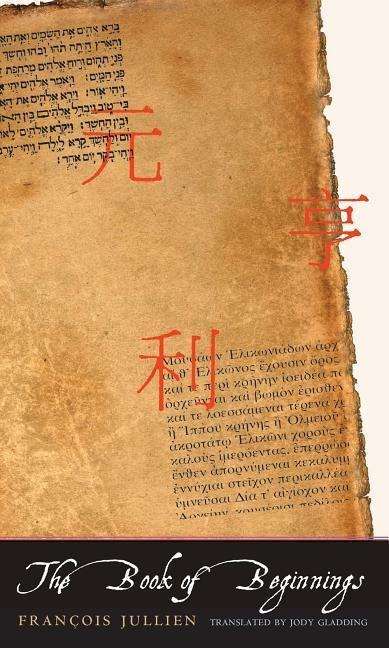 ברא אלהים את השמים ואת
והארץ היתה תהו ובהו וחשך
פני תהום ורוח אלהים מרחפת
פני המים: ויאמר אלהים
ויהי אור: וירא אלהים את
כי טוב ויבדל אלהים בין
ובין החשך: ויקרא אלהים
יום ולחשך קרא לילה ויהי
ויהי בקר יום אחד:
元
亨
利
Μουσάων Ἑλικωνιάδων ἀρχ
αἵ θ' Ἑλικῶνος ἔχουσιν ὄρος
καί τε περὶ κρήνην ἰοειδέα πό
ὀρχεῦνται καὶ βωμὸν ἐρισθεν
καί τε λοεσσάμεναι τέρενα χ
ἢ Ἵππου κρήνης ἢ Ὀλμειοῦ
ἀκροτάτῳ Ἑλικῶνι χοροὺς
καλοὺς ἱμερόεντας, ἐπερρώσ
ἔνθεν ἀπορνύμεναι κεκαλυμ
ἐννύχιαι στεῖχον περικαλλέα
ὑμνεῦσαι Δία τ' αἰγίοχον καὶ
The Book of Beginnings
FRANÇOIS JULLIEN TRANSLATED BY JODY GLADDING